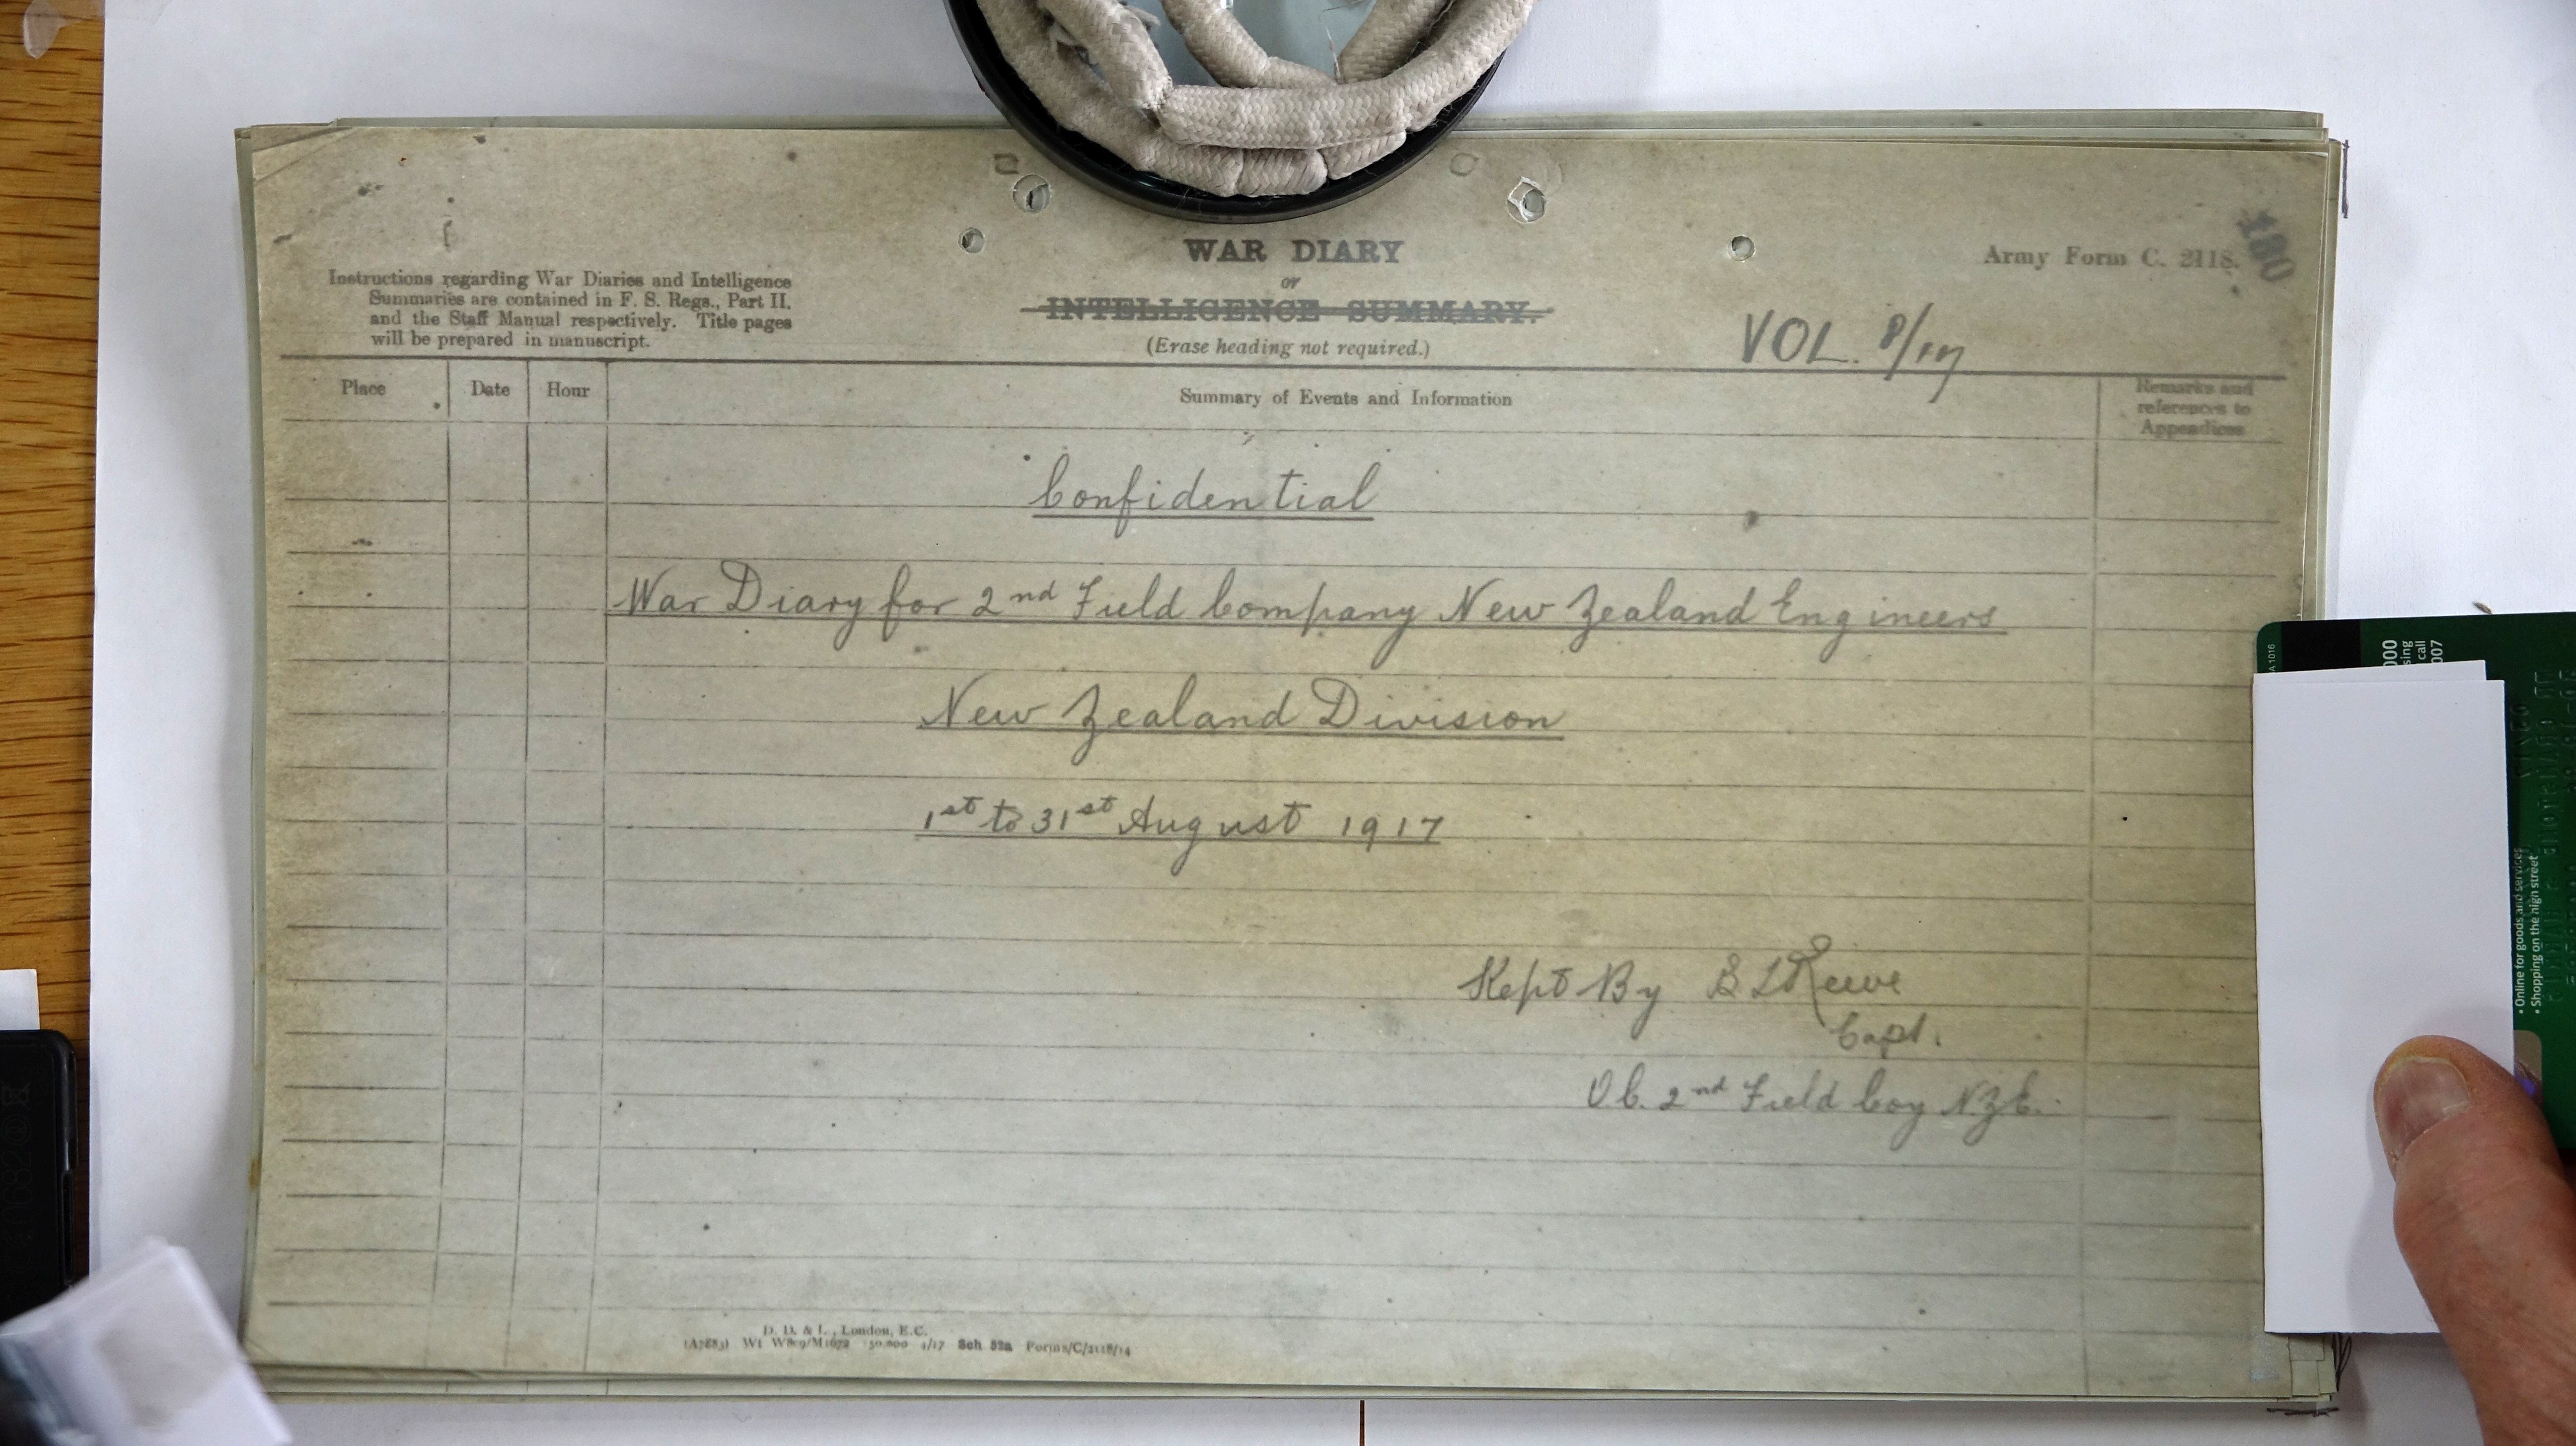 180
Army Form C. 2118.
WAR DIARY
or
INTELLIGENCE SUMMARY.
(Erase heading not required.)
Instructions regarding War Diaries and Intelligence
Summaries are contained in F. S. Regs., Part II.
and the Staff Manual respectively. Title pages
will be prepared in manuscript.
VOL. 8/17
Place
Date
Hour
Summary of Events and Information
Remarks and
references to
Appendices
Confidential
War Diary for 2nd Field Company New Zealand Engineers
New Zealand Division
1st to 31st August 1917
Kept By
Reeve
Capt.
O.C. 2nd Field Coy N.Z.E.
D. D. & L., London, E.C.
(A7883) Wt W809/M1672 1/17 Sch 52a Forms/C/2118/14
A 1016
000
sing
call
007
• Online for goods and services
• Shopping on the high street